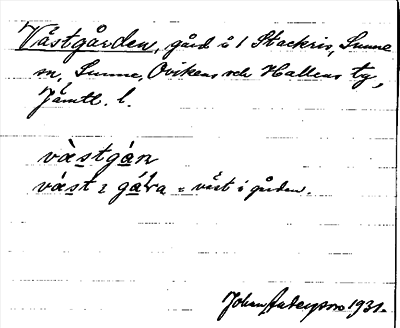 Västgården, gård å 1 Stackris, Sunne
sn, Sunne, Ovikens och Hallens tg,
Jämtl. l.
västgån
väst i gå̄ra = väst i gården.
Johan Anderson 1931.